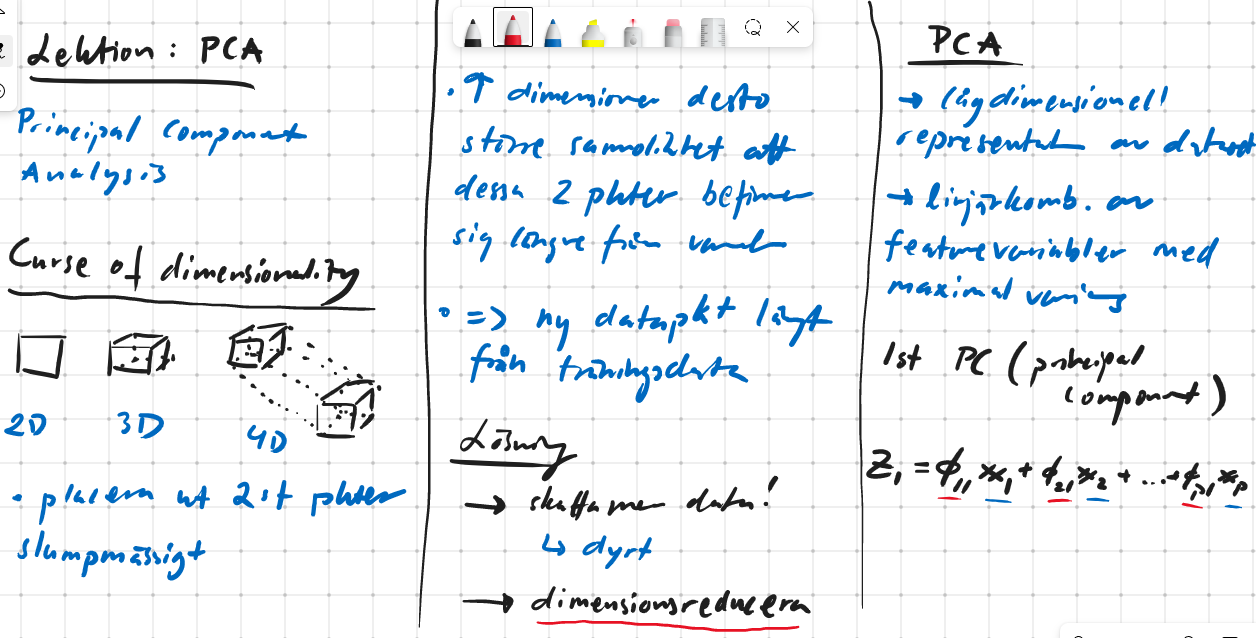 Lektion: PCA
Principal Component
Analysis
Curse of dimensionality
2D 3D 4D
• placera ut 2 st pkter
slumpmässigt
• ↑ dimensioner desto
större sannolikhet att
dessa 2 pkter befinner
sig längre från varandra
• => ny datapkt långt
från träningsdata
Lösning
→ skaffa mer data!
↳ dyrt
→ dimensionsreducera
PCA
→ lågdimensionell
representation av dataset
→ linjärkomb. av
featurevariabler med
maximal varians
1st PC (principal
component)
Z₁ = ϕ₁₁ x₁ + ϕ₂₁ x₂ + ... + ϕₚ₁ xₚ